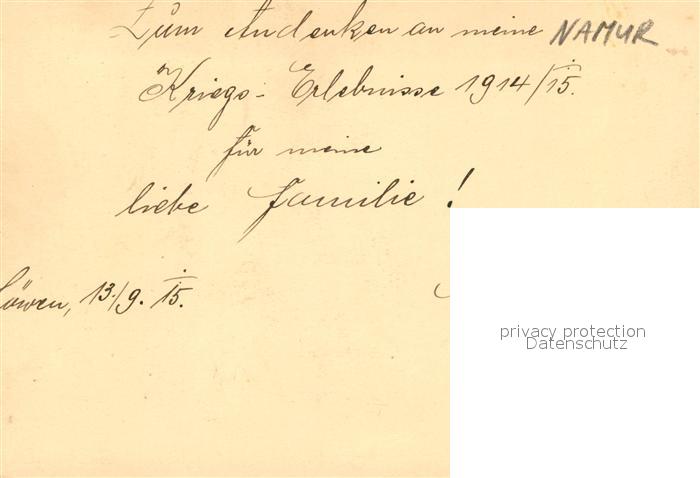 Zum Andenken an meine NAMUR
Kriegs-Erlebnisse 1914/15.
für meine
liebe Familie!
Löwen, 13./9. 15.
privacy protection
Datenschutz